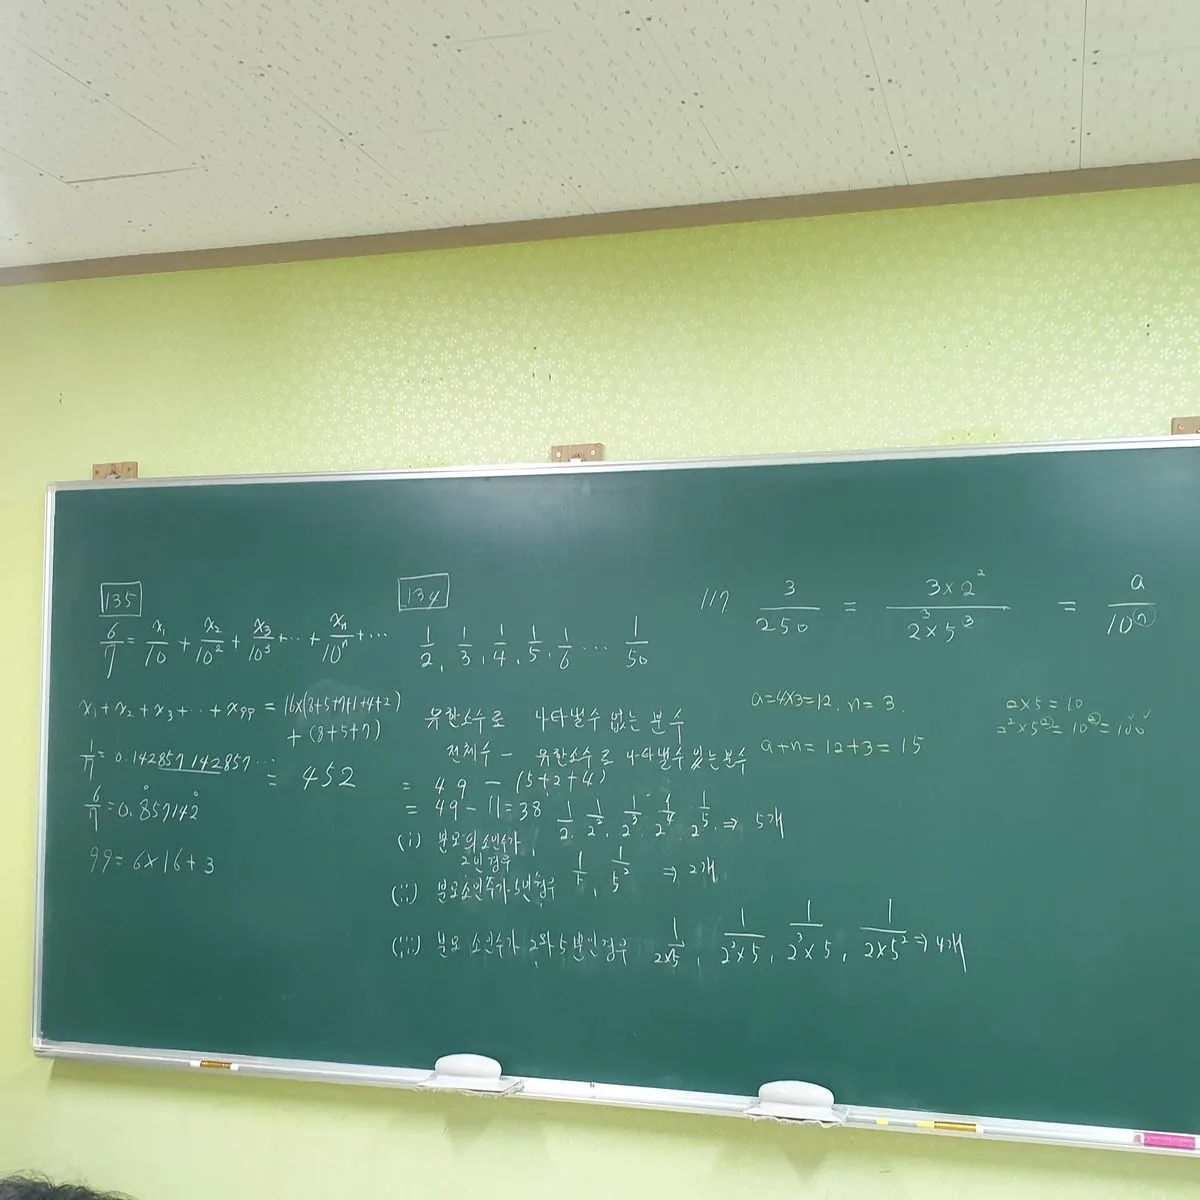 135
6/7 = x₁/10 + x₂/10² + x₃/10³ + ··· + xₙ/10ⁿ + ···
x₁ + x₂ + x₃ + ··· + x₉₉ = 16×(8+5+7+1+4+2)
+ (8+5+7)
1/7 = 0.142857 142857···
= 452
6/7 = 0.8̇57142̇
99 = 6×16+3
134
1/2, 1/3, 1/4, 1/5, 1/6 ··· 1/50
유한소수로 나타낼수 없는 분수
전체수 - 유한소수로 나타낼수 있는분수
= 49 - (5+2+4)
= 49 - 11 = 38
(i) 분모의 소인수가
2인 경우
1/2, 1/2², 1/2³, 1/2⁴, 1/2⁵, ⇒ 5개
(ii) 분모소인수가 5인경우 1/5, 1/5² ⇒ 2개
(iii) 분모 소인수가 2와 5 뿐인경우 1/2×5, 1/2²×5, 1/2³×5, 1/2×5² ⇒ 4개
117 3/250 = 3×2²/2³×5³ = a/10ⁿ
a=4×3=12. n=3.
a+n = 12+3 = 15
2×5 = 10
2²×5² = 10² = 100